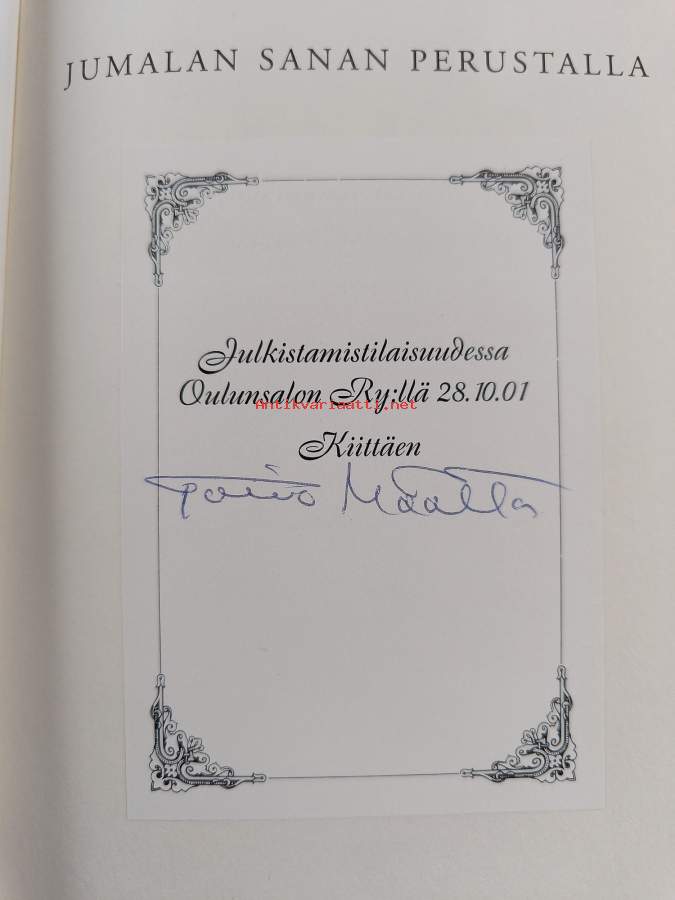 JUMALAN SANAN PERUSTALLA
Julkistamistilaisuudessa
Oulunsalon Ry:llä 28.10.01
Antikvariaatti.net
Kiittäen
Toivo Määttä